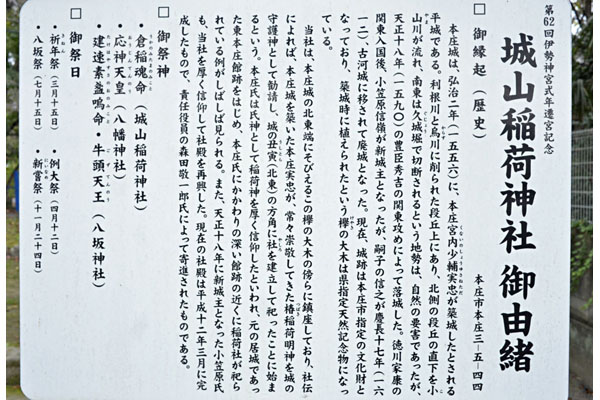 第62回伊勢神宮式年遷宮記念
城山稲荷神社 御由緒
本庄市本庄三-五-四四
□御縁起(歴史)
本庄城は、弘治二年(一五五六)に、本庄宮内少輔実忠が築城したとされる
平城である。利根川と烏川に削られた段丘上にあり、北側の段丘の直下を小
山川が流れ、南東は久城堀で切断されるという地勢は、自然の要害であったが、
天正十八年(一五九〇)の豊臣秀吉の関東攻めによって落城した。徳川家康の
関東入国後、小笠原信嶺が新城主となったが、嗣子の信之が慶長十七年(一六
一二)、古河城に移されて廃城となった。現在、城跡は本庄市指定の文化財と
なっており、築城時に植えられたという欅の大木は県指定天然記念物になっ
ている。
当社は、本庄城の北東端にそびえるこの欅の大木の傍らに鎮座しており、社伝
によれば、本庄城を築いた本庄実忠が、常々崇敬してきた椿稲荷明神を城の
守護神として勧請し、城の丑寅(北東)の方角に社を建立して祀ったことに始ま
るという。本庄氏は氏神として稲荷神を厚く信仰したといわれ、元の居城であっ
た東本庄館跡をはじめ、本庄氏にかかわりの深い館跡の近くに稲荷社が祀ら
れている例がしばしば見られる。また、天正十八年に新城主となった小笠原氏
も、当社を厚く信仰して社殿を再興した。現在の社殿は平成十二年三月に完
成したもので、責任役員の森田敬一郎氏によって寄進されたものである。
□御祭神
・倉稲魂命(城山稲荷神社)
・応神天皇(八幡神社)
・建速素盞嗚命・牛頭天王(八坂神社)
□御祭日
・祈年祭(三月十五日) ・例大祭(四月十二日)
・八坂祭(七月十五日) ・新嘗祭(十一月二十四日)